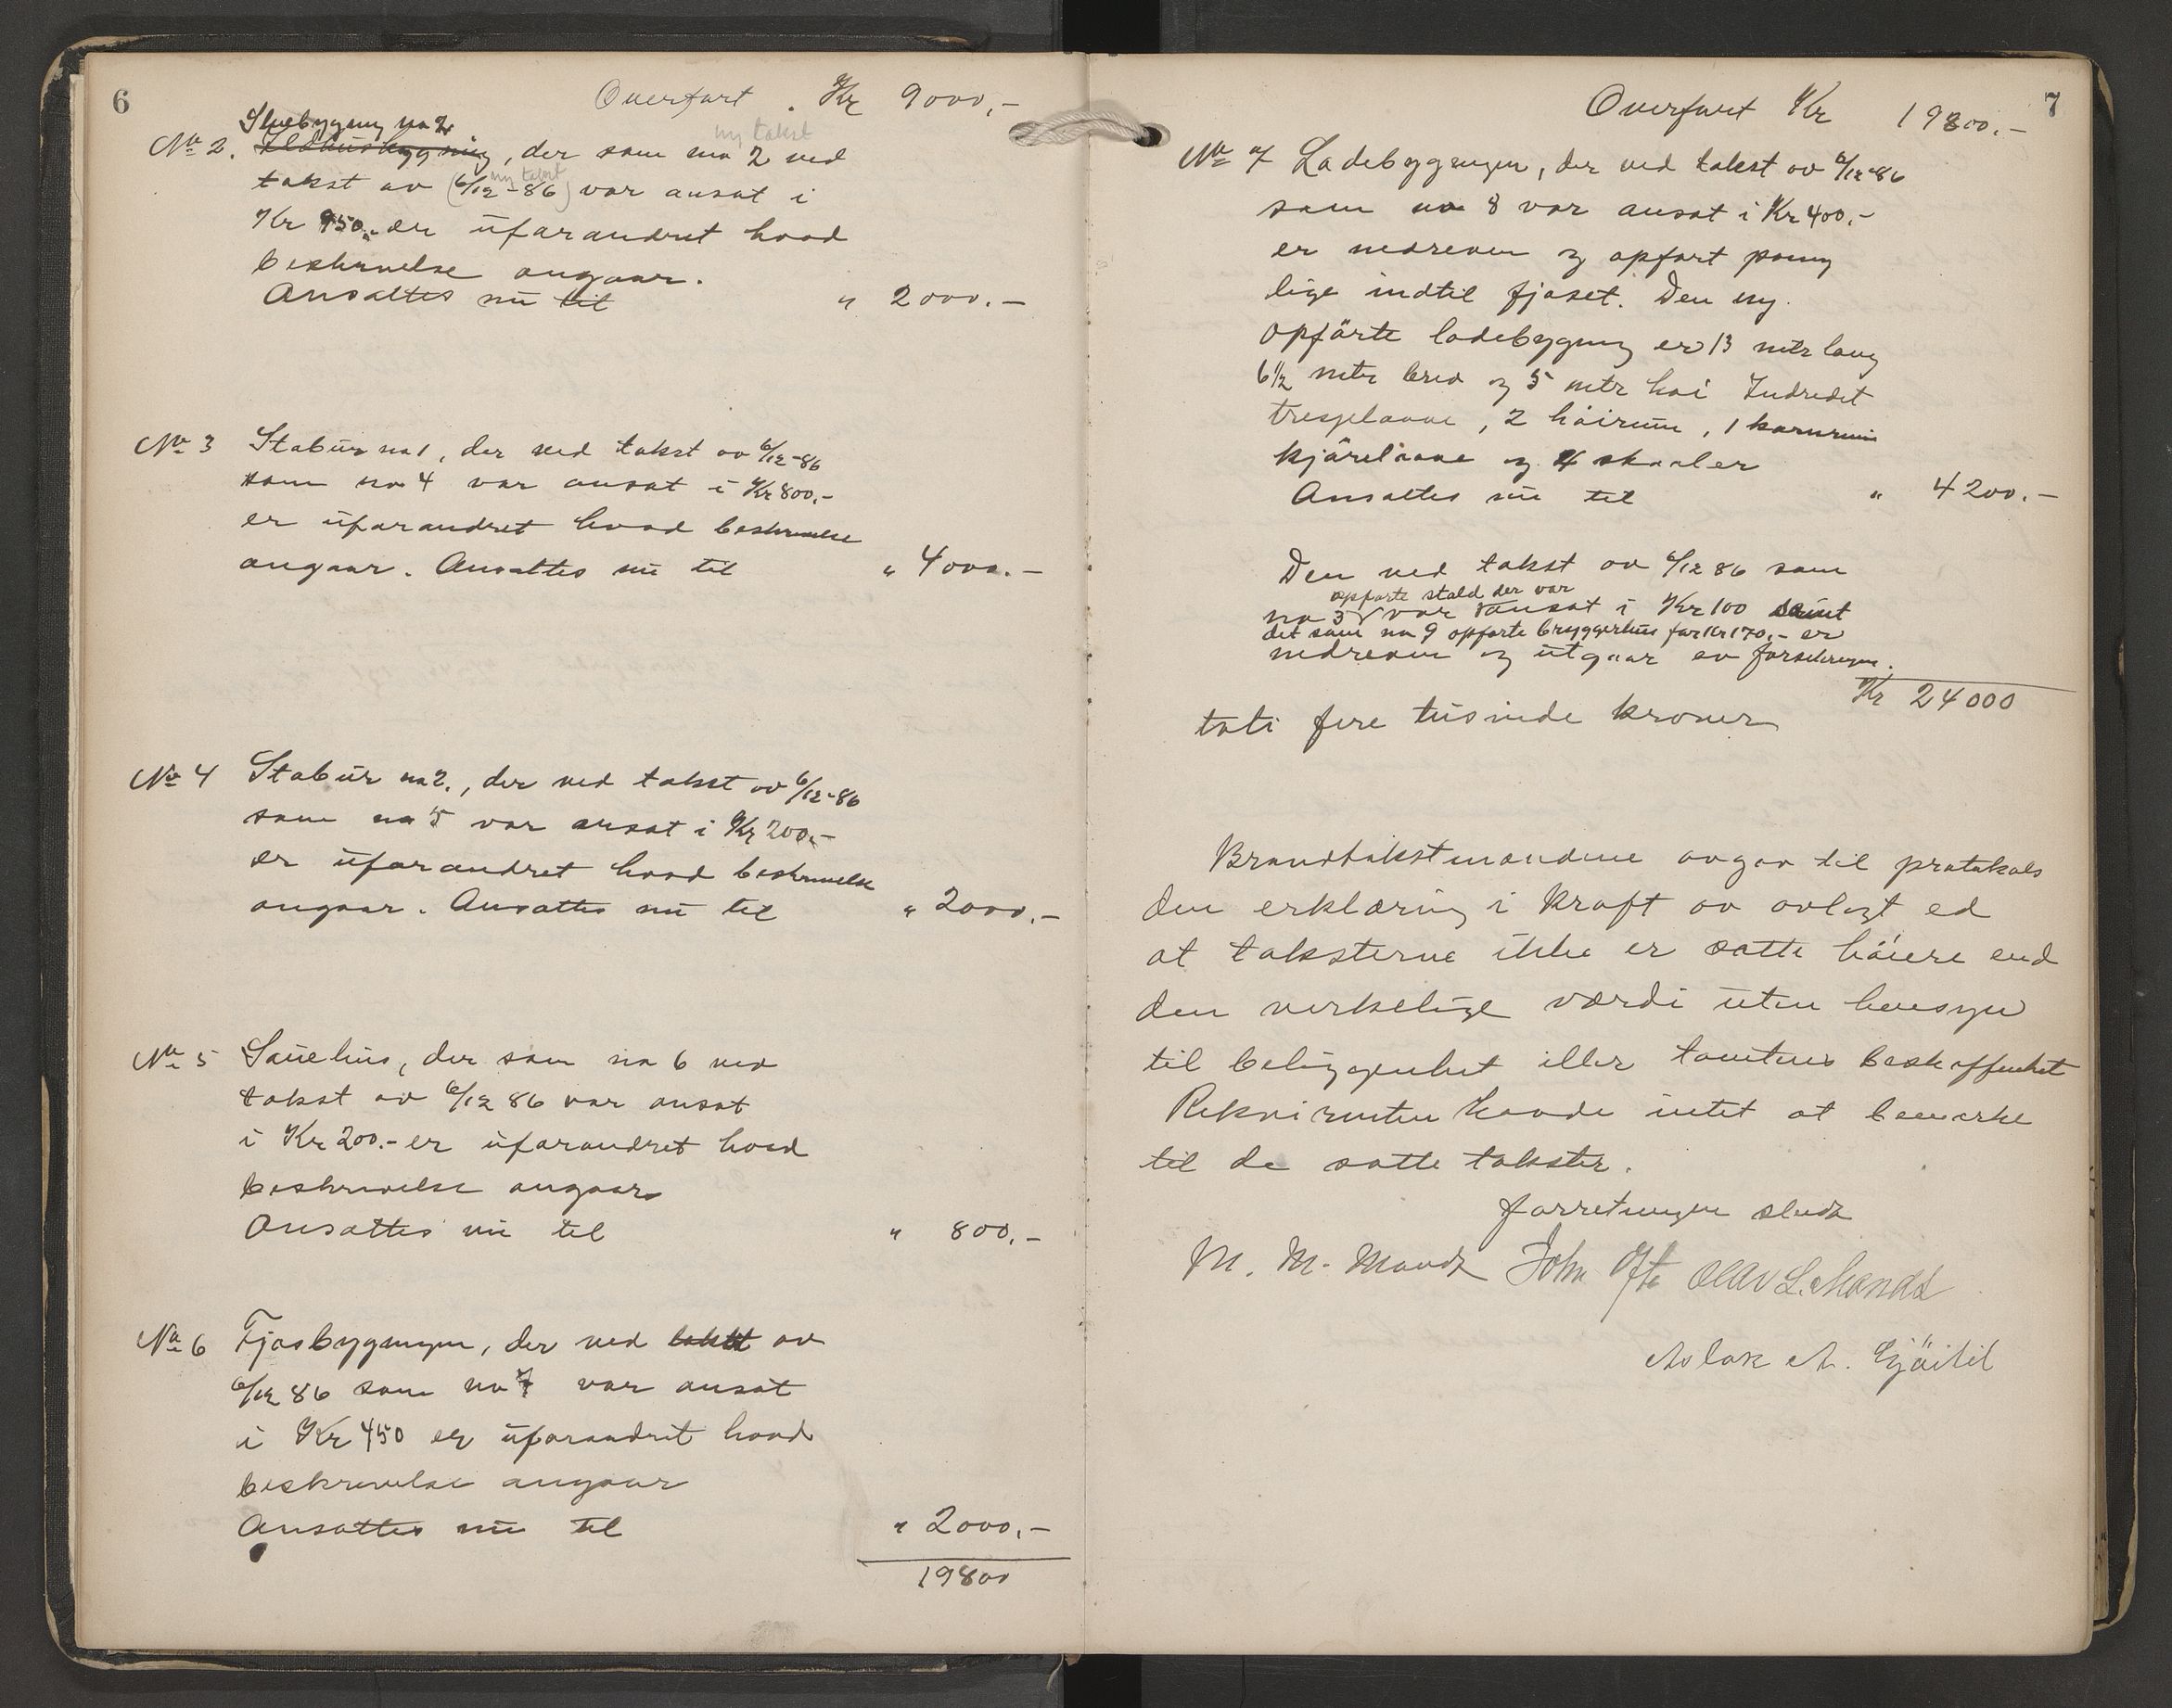 6
Overført . Kr 9000,-
Stuebygning no 2
ny takst
No 2. Ildhusbygning, der som no 2 ved
ny takst
takst av (6/12-86) var ansat i
Kr 950,- er uforandret hvad
beskrivelse angaar.
Ansættes nu til " 2000.-
No 3 Stabur no 1, der ved takst av 6/12-86
som no 4 var ansat i Kr 800,-
er uforandret hvad beskrivelse
angaar. Ansættes nu til " 4000.-
No 4 Stabur no 2., der ved takst av 6/12-86
som no 5 var ansat i Kr 200,-
er uforandret hvad beskrivelse
angaar. Ansættes nu til " 2000,-
No 5 Sauehus, der som no 6 ved
takst av 6/12 86 var ansat
i Kr 200.- er uforandret hvad
beskrivelse angaar
Ansættes nu til " 800,-
No 6 Fjøsbygningen, der ved takst av
6/12 86 som no 7 var ansat
i Kr 450 er uforandret hvad
beskrivelse angaar
Ansættes nu til " 2000,-
19800
7
Overført Kr 19800.-
No 7 Ladebygningen, der ved takst av 6/12-86
som no 8 var ansat i Kr 400.-
er nedreven og opført paany
like indtil fjøset. Den ny
opførte ladebygning er 13 mtr lang
6 1/2 mtr bred og 5 mtr høi Indredet
treskelaave, 2 høirum, 1 kornrum
kjørelaave og 4 skaaler
Ansættes nu til " 4200.-
Den ved takst av 6/12 86 som
opførte stald der var
no 3 var ansat i Kr 100 samt
det som no 9 opførte bryggerhus for Kr 170,- er
nedreven og utgaar av forsikringen.
Kr 24000
toti fire tusinde kroner
Brandtakstmændene avgav til protokols
den erklæring i kraft av avlagt ed
at taksterne ikke er satte høiere end
den verkelige værdi uten hensyn
til beliggenhet eller tomtens beskaffenhet
Rekvirenten havde intet at bemerke
til de satte takster.
Forretningen slut
M. M. Mandt John Ofte Olav L. Mandt
Aslak A. Gjøitil